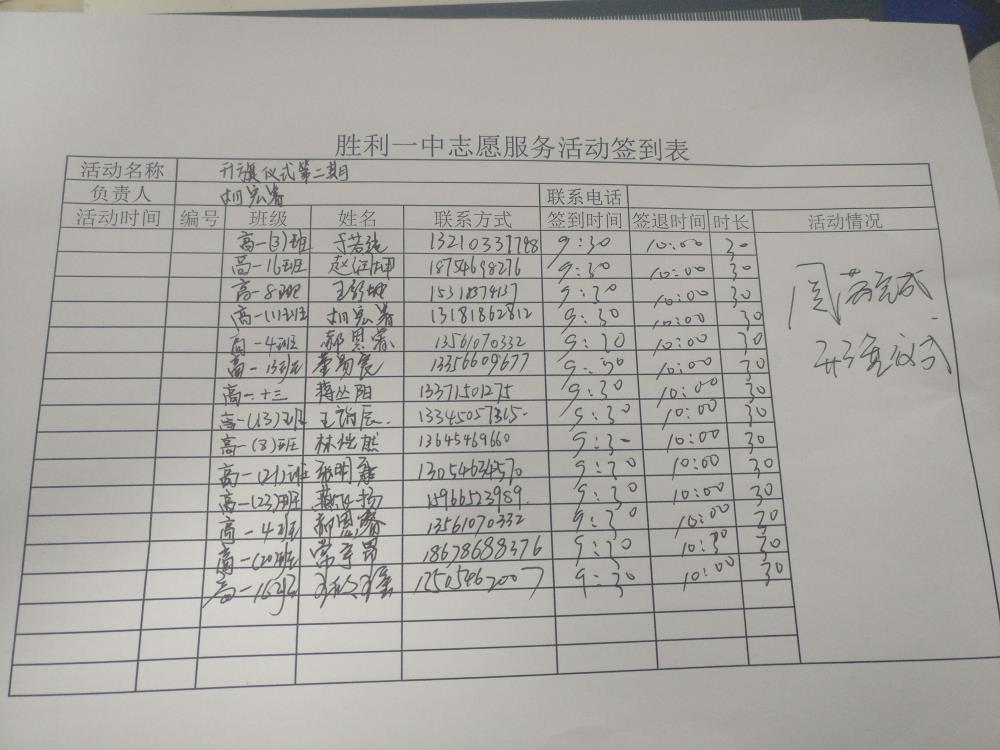 胜利一中志愿服务活动签到表
活动名称 升旗仪式第二期
负责人 胡宏睿 联系电话
活动时间 编号 班级 姓名 联系方式 签到时间 签退时间 时长 活动情况
高一(3)班 于若 9:30 10:00 30
高一16班 赵 18754698276 9:30 10:00 30
高一8班 王 9:30 10:00 30
高一(11)班 胡宏睿 13181862812 9:30 10:00 30
高一4班 郝思睿 13561070332 9:30 10:00 30
高一13班 13356609677 9:30 10:00 30
高一十三 蒋丛阳 13371501275 9:30 10:00 30
高一(13)班 王 辰 9:30 10:00 30
高一(8)班 林 然 13645469660 9:30 10:00 30
高一(21)班 张明 13054634570 9:30 10:00 30
高一(23)班 燕 扬 15966523989 9:30 10:00 30
高一4班 郝思睿 13561070332 9:30 10:00 30
高一(20)班 常 18678688376 9:30 10:30 30
高一16班 9:30 10:00 30
完成
仪式